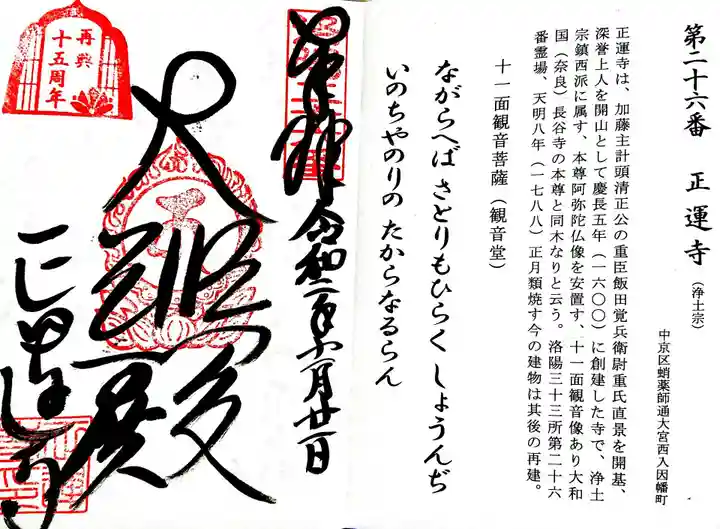 第二十六番 正運寺(浄土宗)
中京区蛸薬師通大宮西入因幡町
正運寺は、加藤主計頭清正公の重臣飯田覚兵衛尉重氏直景を開基、
深誉上人を開山として慶長五年(一六〇〇)に創建した寺で、浄土
宗鎮西派に属す、本尊阿弥陀仏像を安置す、十一面観音像あり大和
国(奈良)長谷寺の本尊と同木なりと云う。洛陽三十三所第二十六
番霊場、天明八年(一七八八)正月類焼す今の建物は其後の再建。
十一面観音菩薩(観音堂)
ながらへば さとりもひらく しょうんぢ
いのちやのりの たからなるらん
奉拝 令和二年六月廿一日
大悲殿
正運寺
再興
十五周年